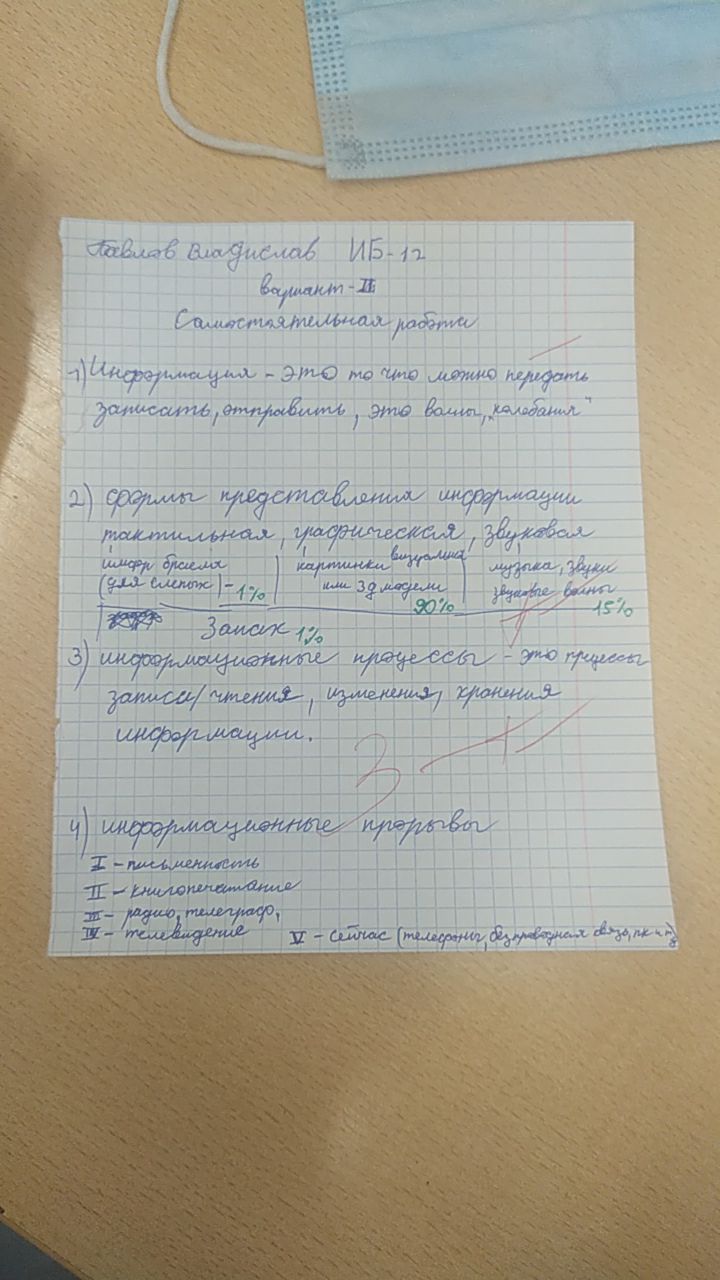 Павлов Владислав ИБ-12
вариант-II
Самостоятельная работа
1) Информация - это то что можно передать
записать, отправить, это волны, "колебания"
2) формы представления информации
тактильная, графическая, звуковая
шифр браеля (для слепых) - 1%
картинки визуальна или 3д модели 90%
музыка, звуки звуковые волны 15%
Запах 1%
3) информационные процессы - это прцессы
записи/чтения, изменения, хранения
информации.
3
4) информационные прорывы
I - письменность
II - книгопечатание
III - радио, телеграф,
IV - телевидение
V - сейчас (телефоны, безпроводная связь, пк и т д